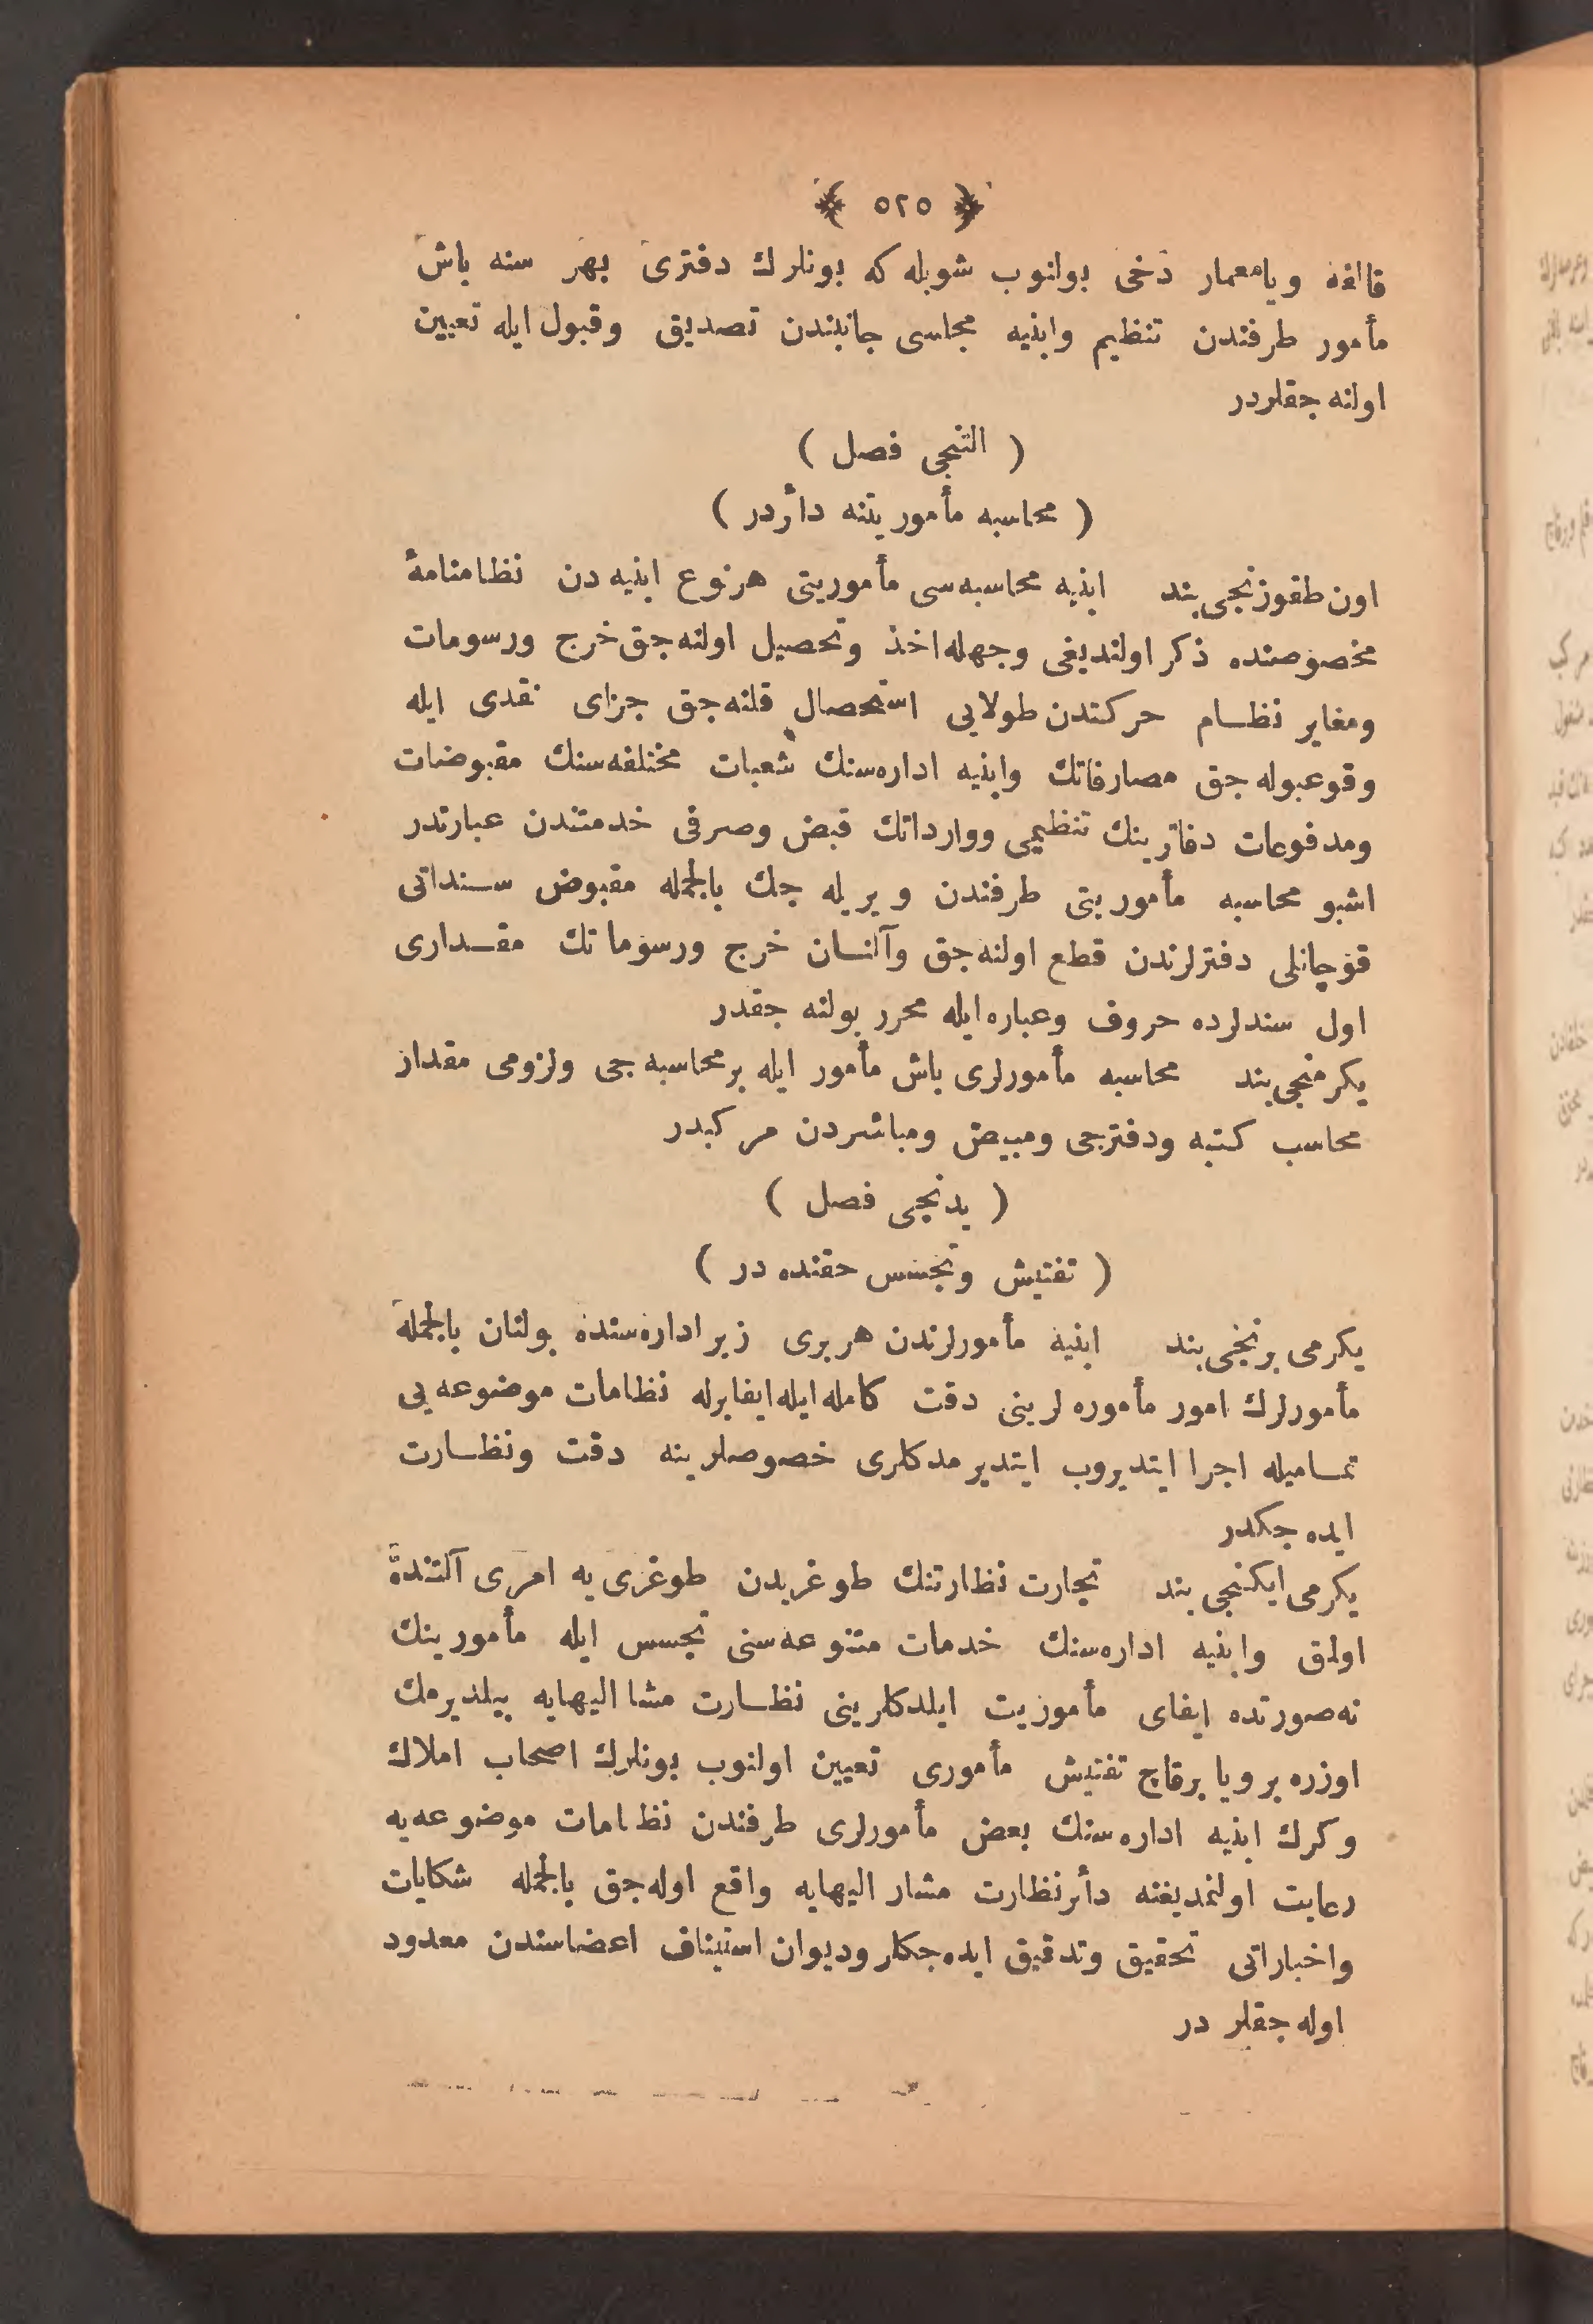 ﴿ ٥٢٥ ﴾
قالفه ویامعمار دخی بولنوب شویله که بونلرك دفتری بهر سنه باش
مأمور طرفندن تنظیم وابنیه مجلسی جانبندن تصدیق وقبول ایله تعیین
اولنه جقلردر
( التنجی فصل )
( محاسبه مأموریتنه دأردر )
اون طقوزنجی بند ابنیه محاسبه‌سی مأموریتی هرنوع ابنیه‌دن نظامنامهٔ
مخصوصنده ذکر اولندیغی وجهله اخذ وتحصیل اولنه‌جق خرج ورسومات
ومغایر نظام حرکتدن طولایی استحصال قلنه‌جق جزای نقدی ایله
وقوعبوله جق مصارفاتك وابنیه اداره‌سنك شعبات مختلفه‌سنك مقبوضات
ومدفوعات دفاترینك تنظیمی ووارداتك قبض وصرفی خدمتندن عبارتدر
اشبو محاسبه مأموریتی طرفندن ویریله جك بالجمله مقبوض سنداتی
قوچانلی دفترلرندن قطع اولنه‌جق وآلنان خرج ورسوماتك مقداری
اول سندلرده حروف وعباره ایله محرر بولنه جقدر
یکرمنجی بند محاسبه مأمورلری باش مأمور ایله برمحاسبه‌جی ولزومی مقدار
محاسب کتبه ودفترجی ومبیض ومباشردن مرکبدر
( یدنجی فصل )
( تفتیش وتجسس حقنده در )
یکرمی برنجی بند ابنیه مأمورلرندن هر بری زیر اداره‌سنده بولنان بالجمله
مأمورلرك امور مأموره لرینی دقت کامله ایله ایفابرله نظامات موضوعه‌یی
تمامیله اجرا ایتدیروب ایتدیرمدکلری خصوصلرینه دقت ونظارت
ایده جکدر
یکرمی ایکنجی بند تجارت نظارتنك طوغریدن طوغری‌یه امری آلتنده
اولمق وابنیه اداره‌سنك خدمات متنوعه‌سنی تجسس ایله مأمورینك
نه‌صورتده ایفای مأموریت ایلدکلرینی نظارت مشا الیهایه بیلدیرمك
اوزره بر ویا برقاچ تفتیش مأموری تعیین اولنوب بونلرك اصحاب املاك
وکرك ابنیه اداره‌سنك بعض مأمورلری طرفندن نظامات موضوعه‌یه
رعایت اولنمدیغنه دأرنظارت مشار الیهایه واقع اوله‌جق بالجمله شکایات
واخباراتی تحقیق وتدقیق ایده‌جکلر ودیوان استیناف اعضاسندن معدود
اوله جقلر در